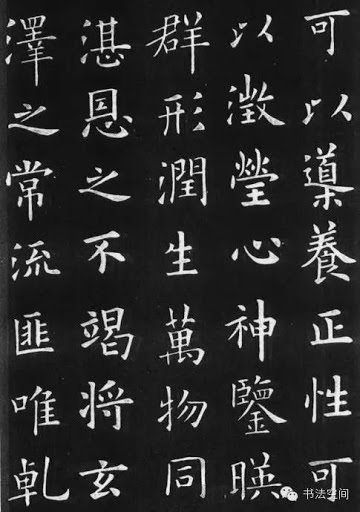 可以導養正性可
以澂瑩心神鑒暎
群形潤生萬物同
湛恩之不竭將玄
澤之常流匪唯乹
书法空间